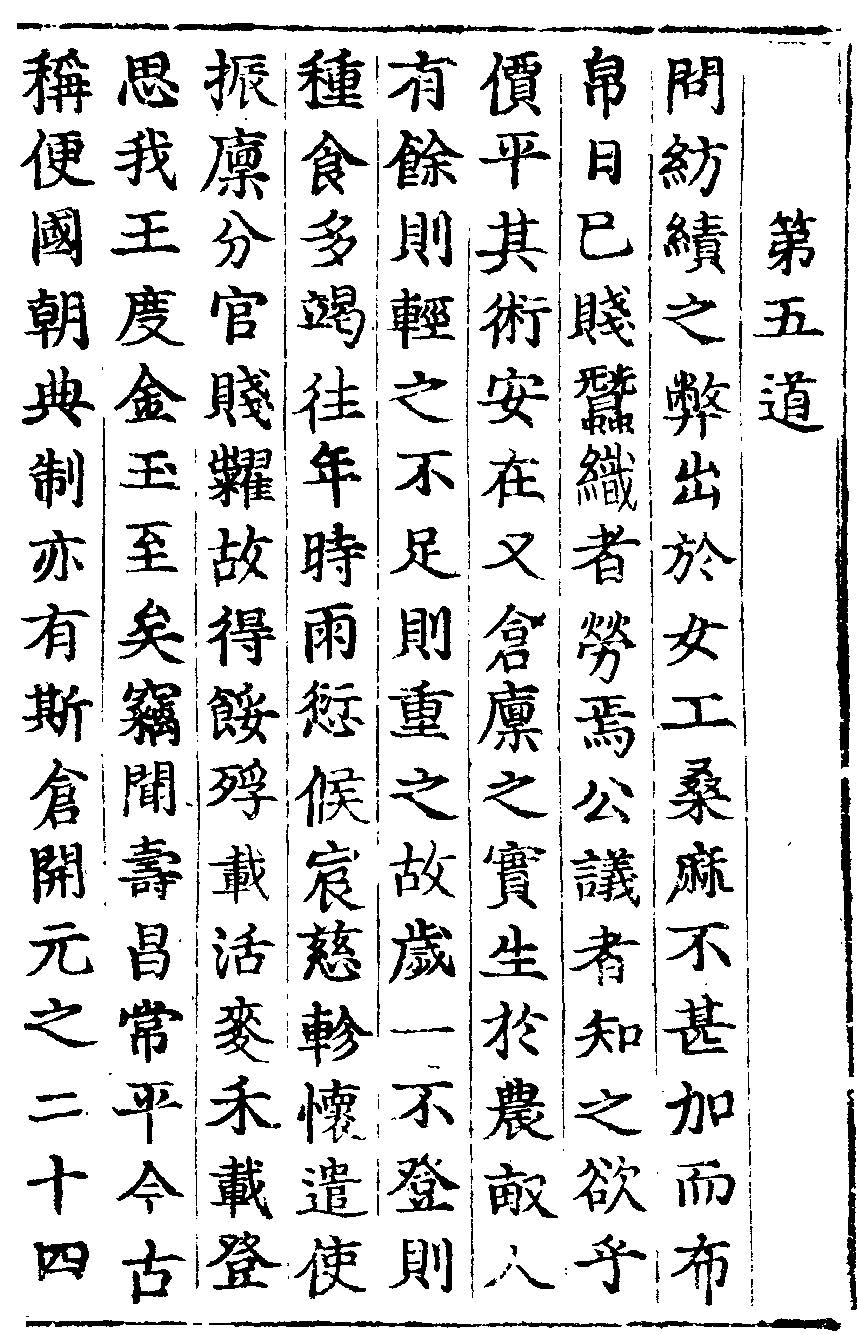 第五道
問紡績之弊出於女工桑麻不甚加而布
帛日已賤蠶織者勞焉公議者知之欲乎
價平其術安在又倉廪之實生於農畝人
有餘則輕之不足則重之故歲一不登則
種食多竭往年時雨愆候宸慈軫懷遣使
振廪分官賤糶故得餒殍載活麥禾載登
思我王度金玉至矣竊聞壽昌常平今古
稱便國朝典制亦有斯倉開元之二十四